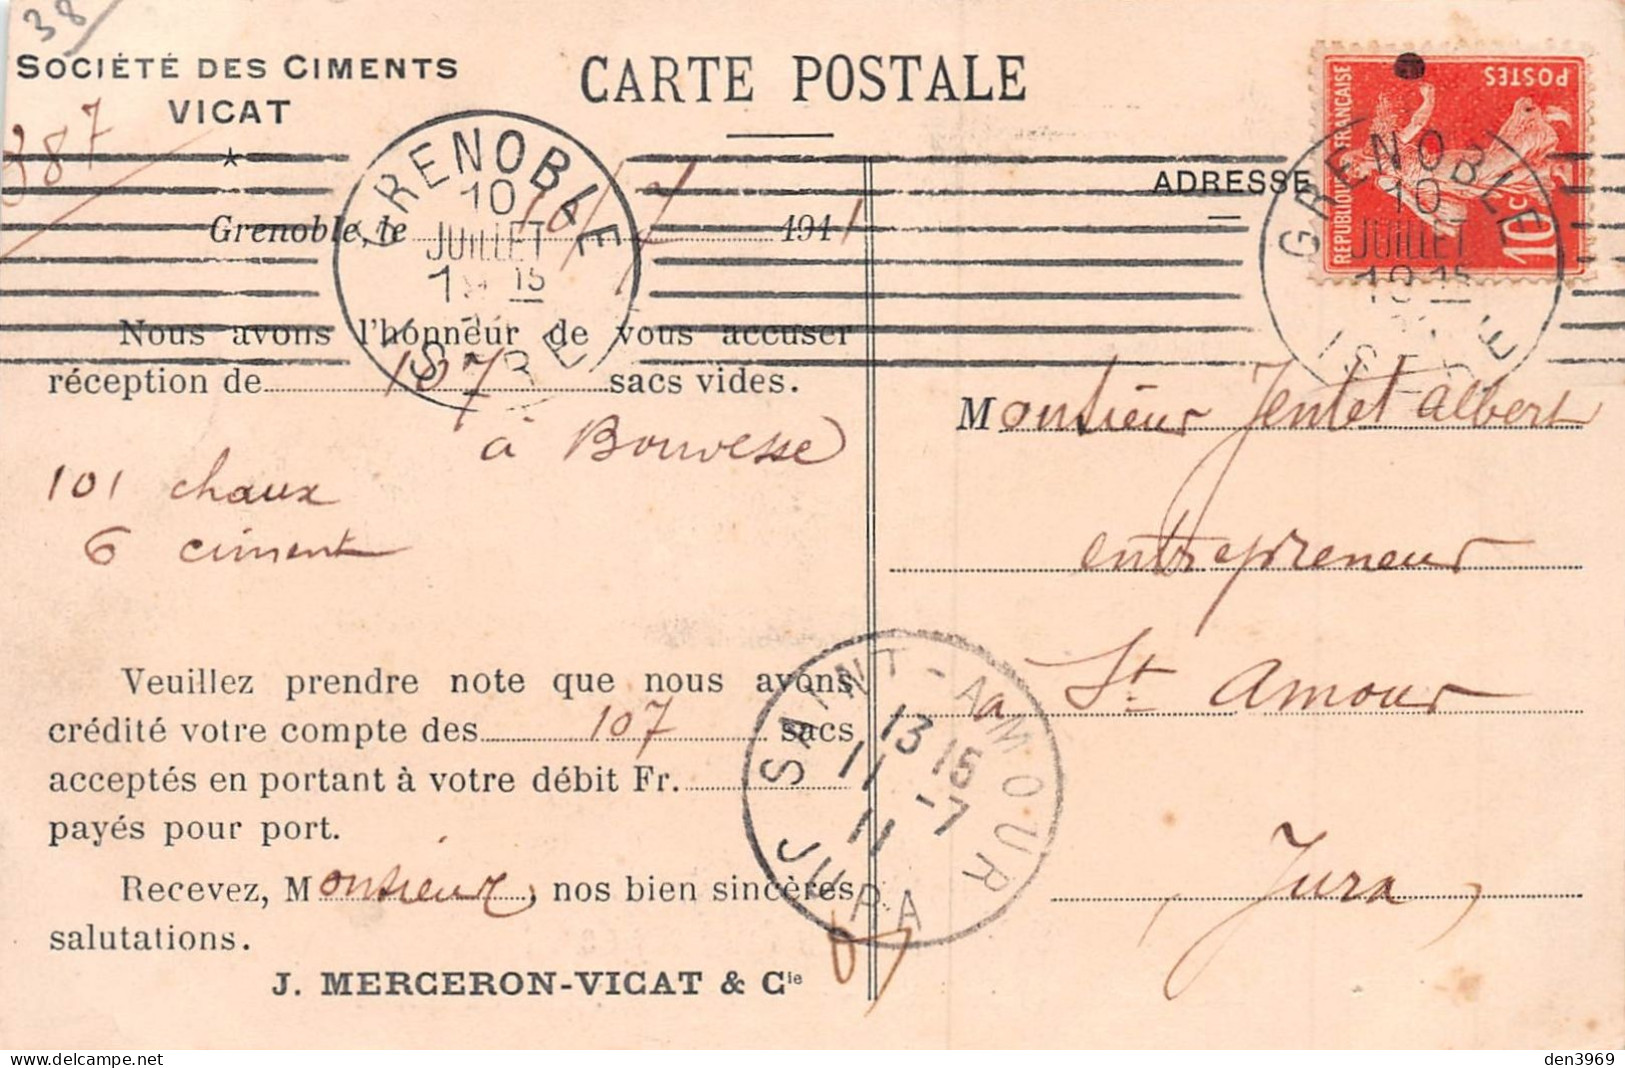 38
SOCIÉTÉ DES CIMENTS
VICAT
387
CARTE POSTALE
POSTES
REPUBLIQUE FRANÇAISE
10c
GRENOBLE
10
JUILLET
ISERE
GRENOBLE
10
JUILLET
ISERE
ADRESSE
Grenoble, le 10/7 1911
Nous avons l'honneur de vous accuser
réception de 107 sacs vides.
à Bouvesse
101 chaux
6 ciment
Veuillez prendre note que nous avons
crédité votre compte des 107 sacs
acceptés en portant à votre débit Fr.
payés pour port.
Recevez, Monsieur, nos bien sincères
salutations.
J. MERCERON-VICAT & Cie
Monsieur Jentet Albert
entrepreneur
à St Amour
(Jura)
SAINT-AMOUR
13 15
11 -7
11
JURA
delcampe.net
den3969